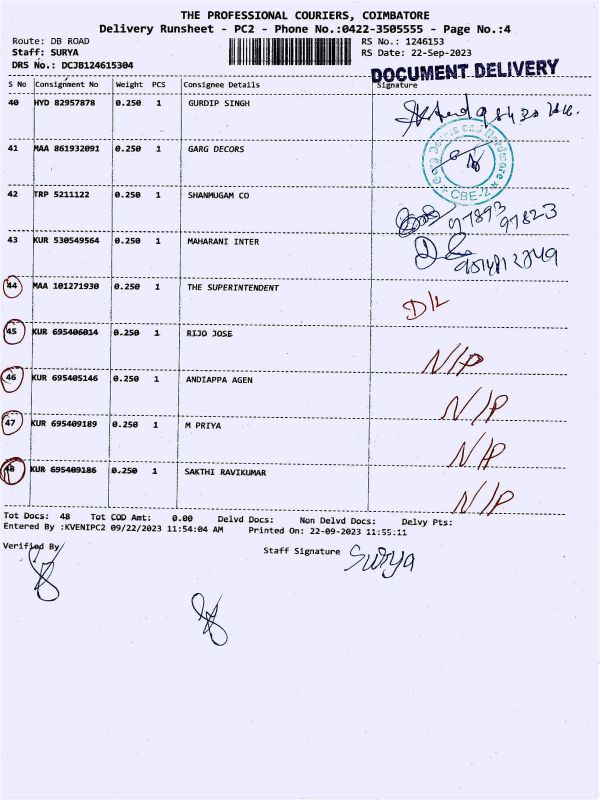 THE PROFESSIONAL COURIERS, COIMBATORE
Delivery Runsheet - PC2 - Phone No.:0422-3505555 - Page No.:4
Route: DB ROAD RS No.: 1246153
Staff: SURYA RS Date: 22-Sep-2023
DRS No.: DCJB124615304 DOCUMENT DELIVERY
S No Consignment No Weight PCS Consignee Details Signature
40 HYD 82957878 0.250 1 GURDIP SINGH
41 MAA 861932091 0.250 1 GARG DECORS
CBE-2
42 TRP 5211122 0.250 1 SHANMUGAM CO
97893 97823
43 KUR 530549564 0.250 1 MAHARANI INTER
44 MAA 101271930 0.250 1 THE SUPERINTENDENT D/L
45 KUR 695406014 0.250 1 RIJO JOSE N/P
46 KUR 695405146 0.250 1 ANDIAPPA AGEN N/P
47 KUR 695409189 0.250 1 M PRIYA N/P
48 KUR 695409186 0.250 1 SAKTHI RAVIKUMAR N/P
Tot Docs: 48 Tot COD Amt: 0.00 Delvd Docs: Non Delvd Docs: Delvy Pts:
Entered By :KVENIPC2 09/22/2023 11:54:04 AM Printed On: 22-09-2023 11:55:11
Verified By Staff Signature Surya